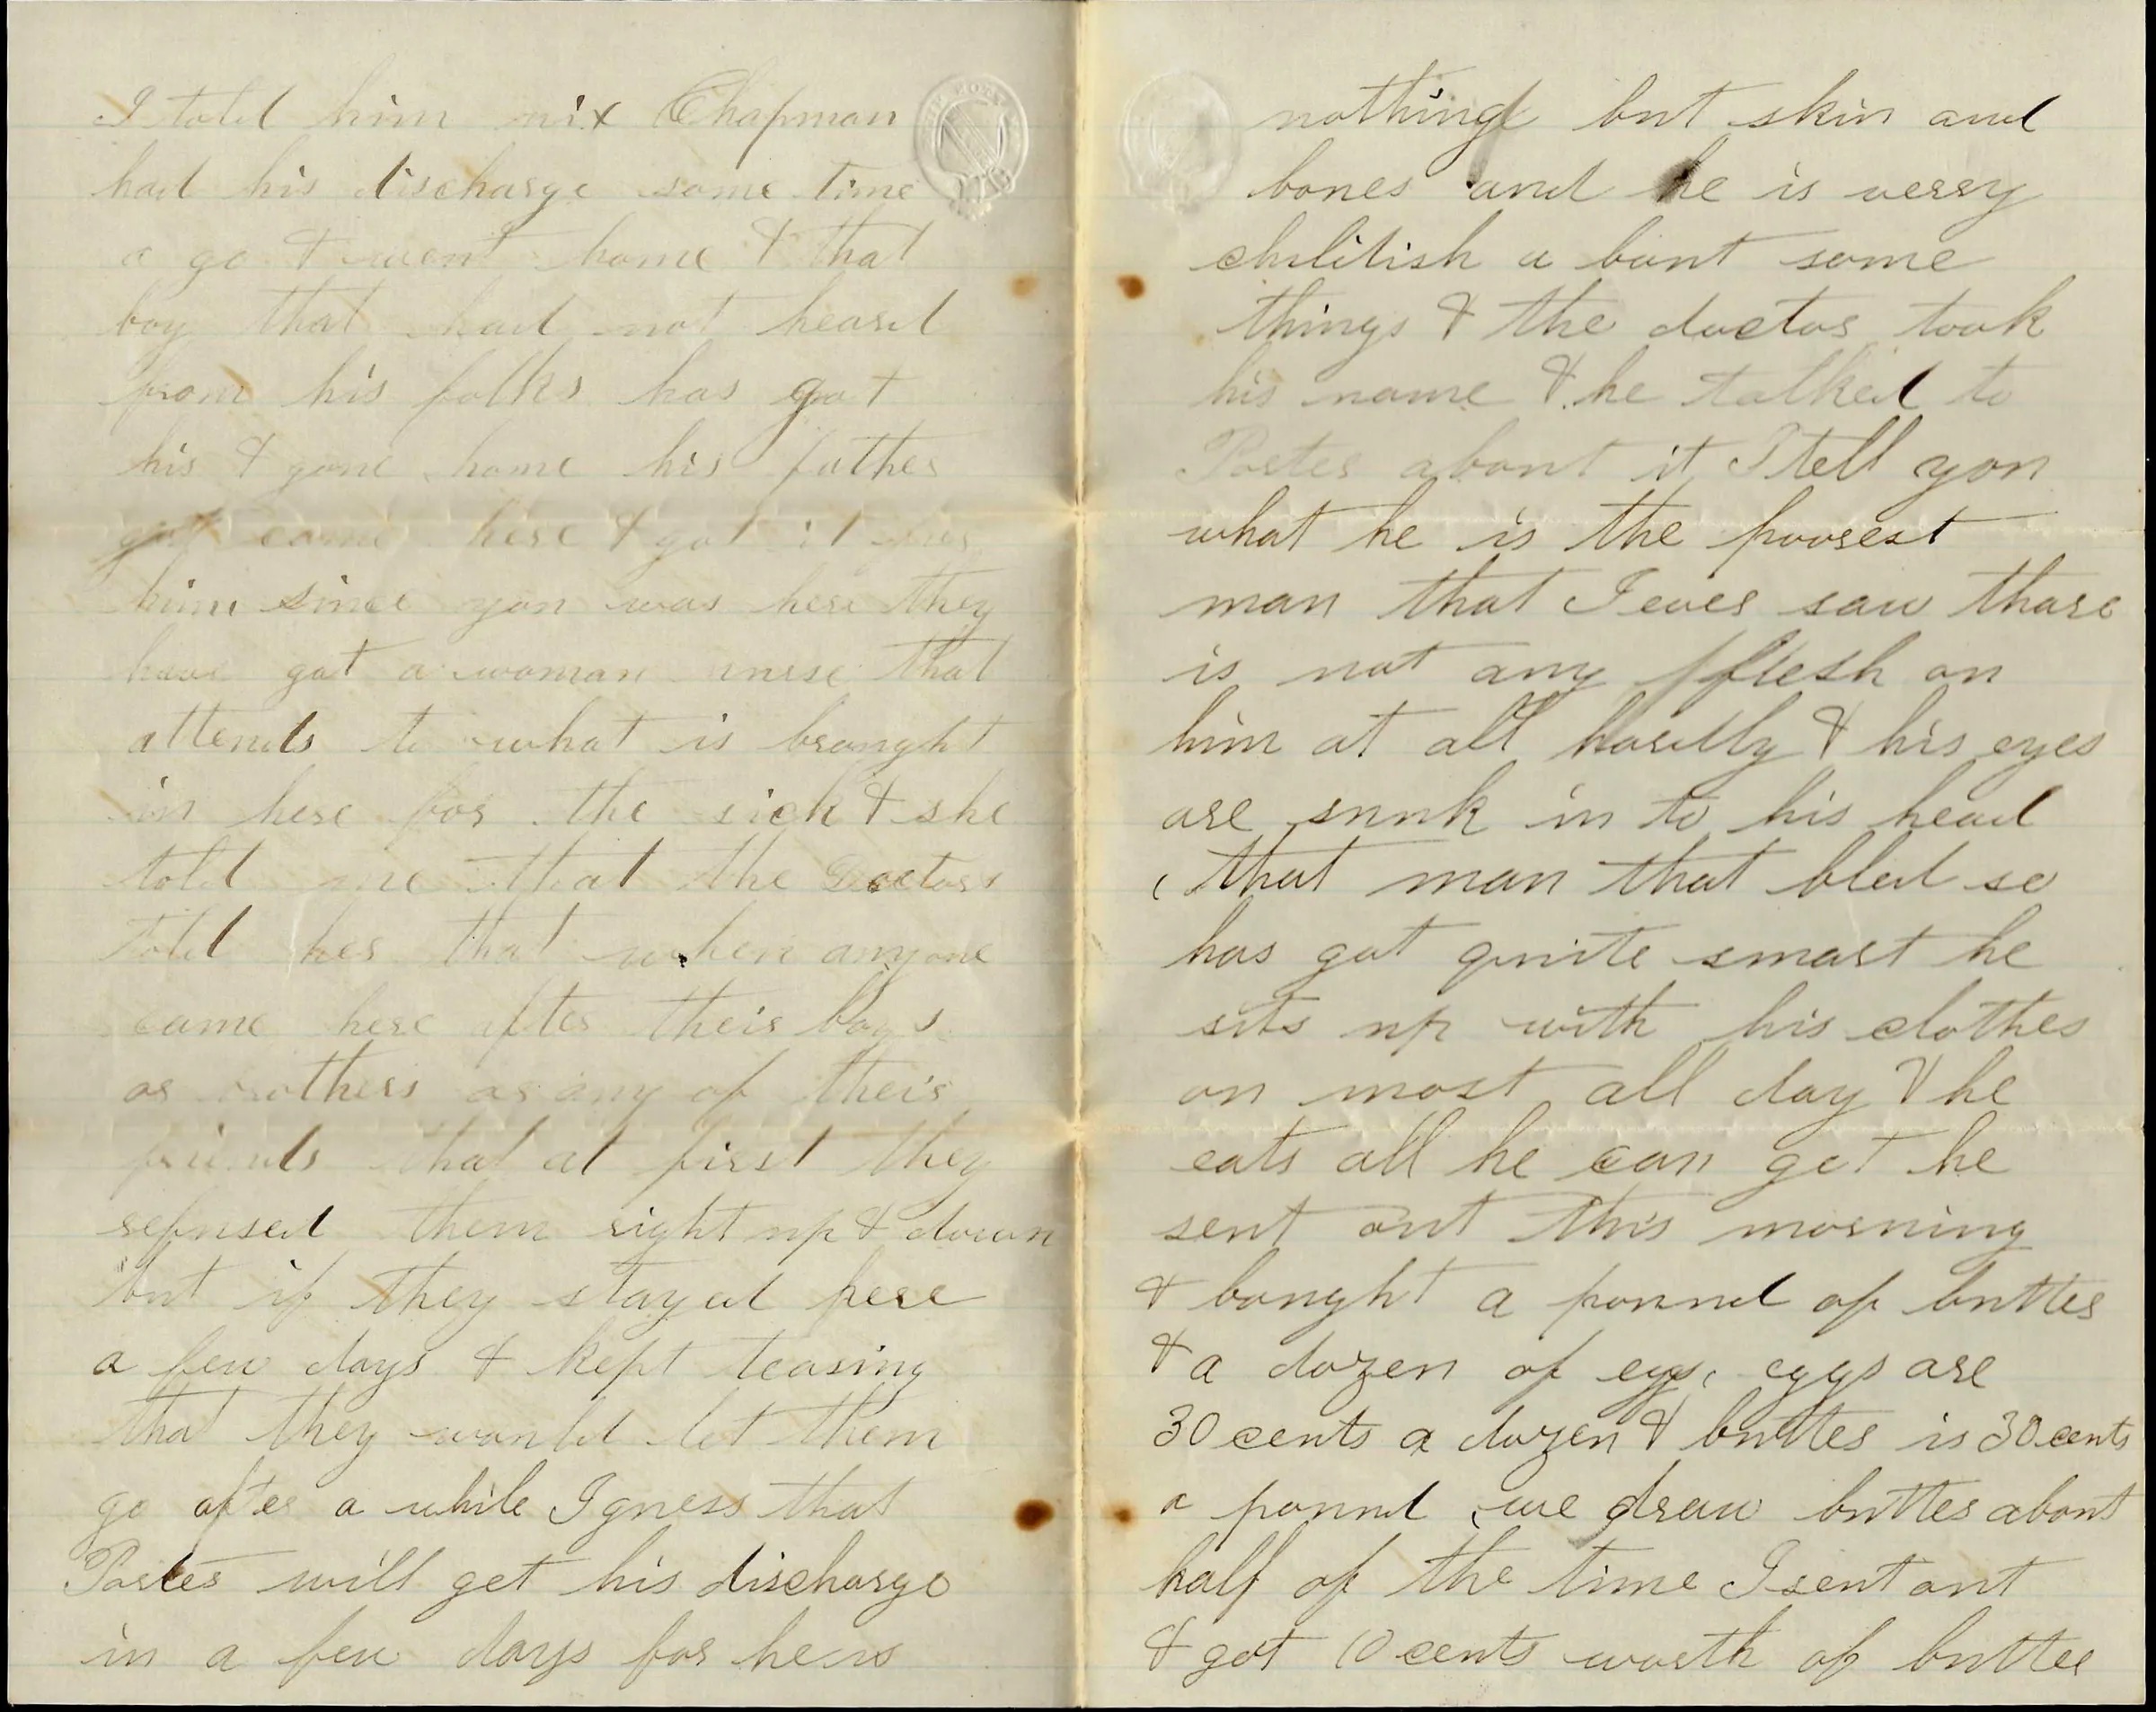 I told him nix Chapman
had his discharge some time
a go & went home & that
boy that had not heard
from his folks has got
his & gone home his father
came here & got it for
him since you was here they
have got a woman nurse that
attends to what is braught
in here for the sick & she
told me that the Doctors
told her that when anyone
came here after their boys
or mothers or any of their
friends that at first they
refused them right up & down
but if they stayed here
a few days & kept teasing
that they would let them
go after a while I guess that
Porter will get his discharge
in a few days for he is
nothing but skin and
bones and he is verry
childish a bout some
things & the doctor took
his name & he talked to
Porter about it I tell you
what he is the poorest
man that I ever saw thare
is not any flesh on
him at all hardly & his eyes
are sunk in to his head
that man that bled so
has got quite smart he
sits up with his clothes
on most all day & he
eats all he can get he
sent out this morning
& bought a pound of butter
& a dozen of eggs, eggs are
30 cents a dozen & butter is 30 cents
a pound we draw butter about
half of the time I sent out
& got 10 cents worth of butter